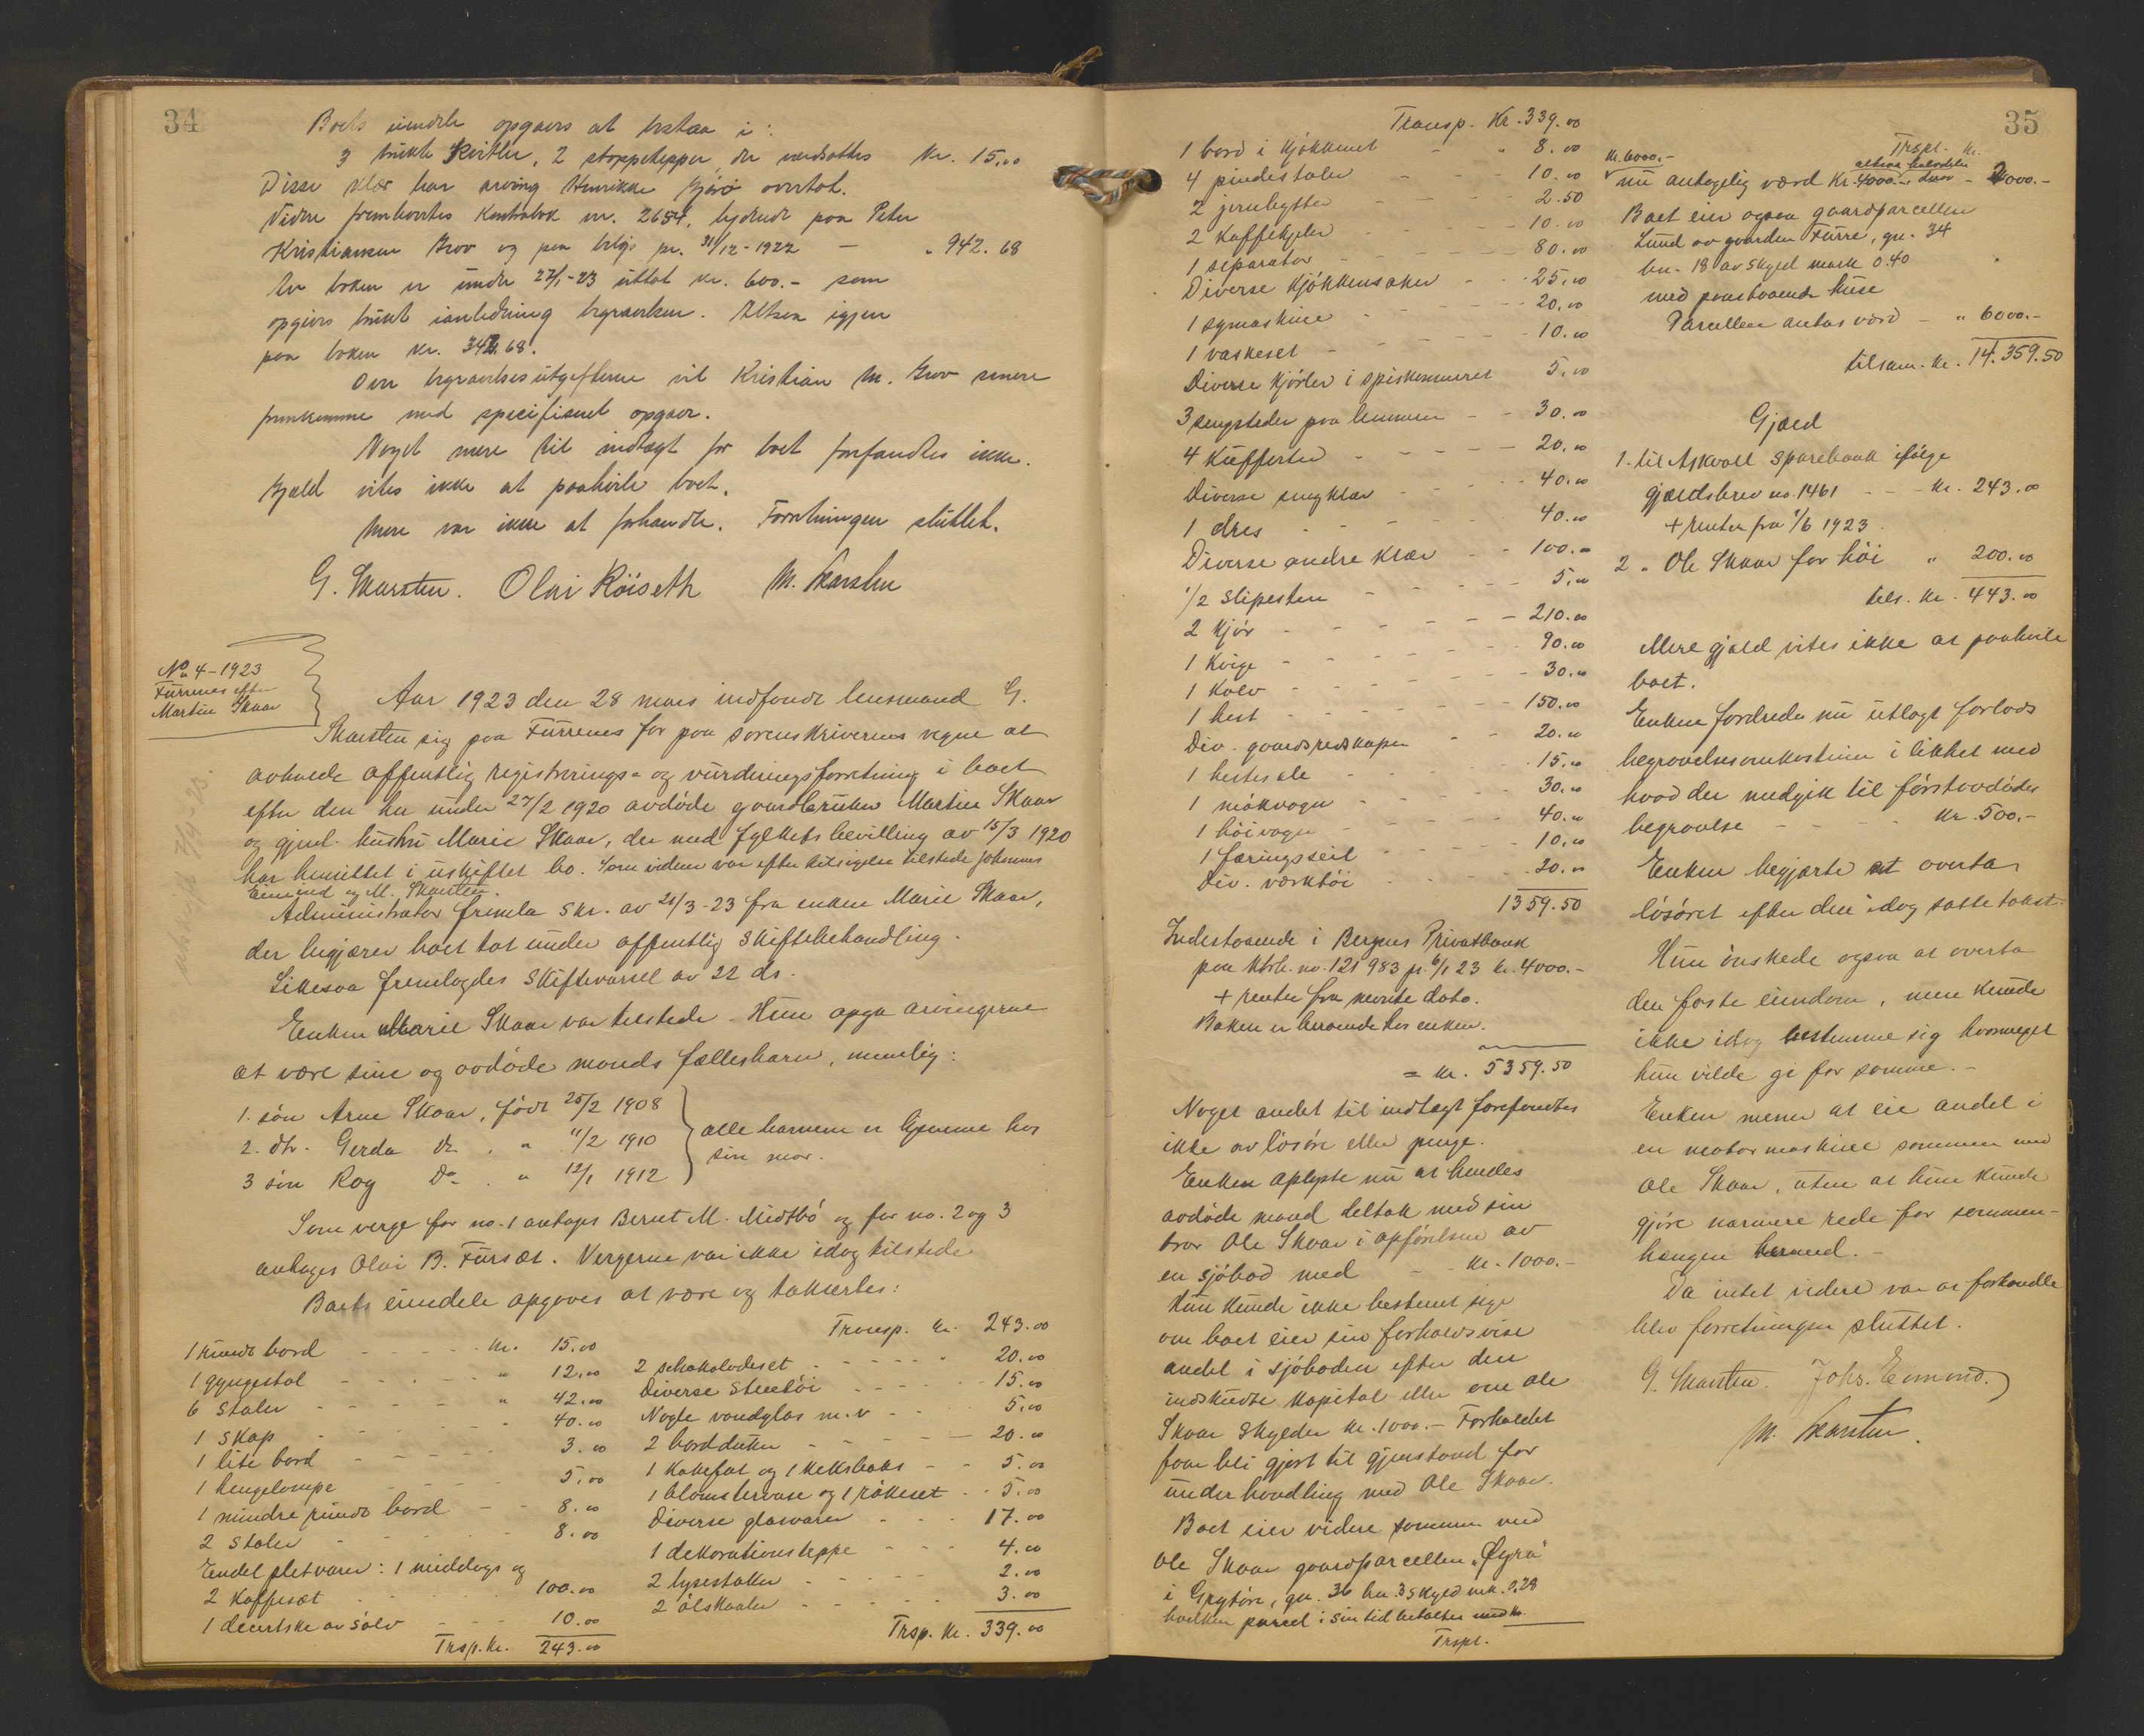 34
Boets eiendele opgaves at bestaa i:
3 brukte Kvitler, 2 stoppetepper, der verdsattes kr. 15.00
Disse klær har arving Henrikke Gjörö overtat.
Videre fremhentes Kontrabok nr. 2654, lydende paa Peter
Kristiansen Grov og paa beløp pr. 31/12-1922 — " 942.68
Av boken er under 27/1-23 uttat kr. 600.- som
opgives brukt i anledning begravelsen. Altsaa igjen
paa boken kr. 342.68.
Over begravelsesutgifterne vil Kristian M. Grov senere
fremkomme med specifiseret opgave.
Noget mere til indtægt for boet forefandtes ikke.
Gjæld vites ikke at paahvile boet.
Mere var ikke at forhandle. Forretningen sluttet.
G. Skarsten. Olai Röiseth M. Skarsten
No 4-1923
Furrenes efter
Martin Skaar
Aar 1923 den 28 mars indfandt lensmand G.
Skarsten sig paa Furrenes for paa sorenskriverens vegne at
avholde offentlig registrerings- og vurderingsforretning i boet
efter den her under 27/2 1920 avdöde gaardbruker Martin Skaar
og gjenl. hustru Marie Skaar, der med fylkets bevilling av 15/3 1920
har hensittet i uskiftet bo. Som vidner var efter tilsigelse tilstede Johannes
Eimind og M. Skarsten.
Administrator fremla skr. av 21/3-23 fra enken Marie Skaar,
der begjærer boet tat under offentlig skiftebehandling.
Likesaa fremlagdes skiftevarsel av 22 ds.
Enken Marie Skaar var tilstede. Hun opga arvingerne
at være sine og avdöde mands fællesbarn, nemlig:
1. sön Arne Skaar, född 25/2 1908
2. dtr. Gerda do . " 11/2 1910
3 sön Roy do . " 12/1 1912
alle barnene er hjemme hos
sin mor.
Som verge for no. 1 antages Bernt M. Midtbö og for no. 2 og 3
antages Olai B. Fursæt. Vergerne var ikke idag tilstede
Boets eiendele opgaves at være og taksertes:
1 rundt bord - - - kr. 15.00
1 gyngestol - - - " 12.00
6 stoler - - - " 42.00
1 skap - - - 40.00
1 lite bord - - - 3.00
1 hengelampe - - - 5.00
1 mindre rundt bord - - 8.00
2 stoler - - - 8.00
Endel pletvarer: 1 middags og
2 kaffesæt - - - 100.00
1 dessertske av sölv - - - 10.00
Trsp. kr. 243.00
Transp. kr. 243.00
2 schokoladeset - - - " 20.00
Diverse stentöi - - - 15.00
Nogle vandglas m.v - - 5.00
2 bordduker - - - 20.00
1 Kakefat og 1 Keksboks - - 5.00
1 blomstervase og 1 rökeset - - 5.00
Diverse glasvarer - - - 17.00
1 dekorationsteppe - - - 4.00
2 lysestaker - - - 2.00
2 ölskaaler - - - 3.00
Trsp. kr. 339.00
35
Transp. Kr. 339.00
1 bord i Kjökkenet - " 8.00
4 pindestoler - - - 10.00
2 jernbytter - - - 2.50
2 Kaffikjeler - - - 10.00
1 separator - - - 80.00
Diverse Kjökkensaker - - 25.00
1 symaskine - - - 20.00
1 vaskeset - - - 10.00
Diverse Kjörler i spiskammeret 5.00
3 sengsteder paa lemmen - - 30.00
4 Kufferter - - - 20.00
Diverse sengklær - - - 40.00
1 dres - - - 40.00
Diverse andre klær - - 100.00
1/2 slipesten - - - 5.00
2 kjör - - - 210.00
1 kvige - - - 90.00
1 kalv - - - 30.00
1 hest - - - 150.00
Div. gaardsredskaper - - 20.00
1 hestesele - - - 15.00
1 mökvogn - - - 30.00
1 höivogn - - - 40.00
1 færingsseil - - - 10.00
Div. værktöi - - - 20.00
1359.50
Indestaaende i Bergens Privatbank
paa ktrb. no. 121983 pr. 6/1 23 kr. 4000.-
+ renter fra nevnte dato.
Boken er beroende hos enken.
= kr. 5359.50
Noget andet til indtægt forefandtes
ikke av lösöre eller penge.
Enken oplyste nu at hendes
avdöde mand deltok med sin
bror Ole Skaar i opförelsen av
en sjöbod med - - kr. 1000.-
Hun kunde ikke bestemt sige
om boet eier sin forholdsvise
andel i sjöboden efter den
indskudte kapital eller om Ole
Skaar skylder kr. 1000.- Forholdet
faar bli gjort til gjenstand for
underhandling med Ole Skaar.
Boet eier videre sammen med
Ole Skaar gaardparcellen "Øyra"
i Grytöre, gn. 36 bn. 3 skyld mk. 0.28
hvilken parcel i sin tid betaltes med kr.
Trspt.
Trspt. kr.
kr. 6000.-
altsaa halvdelen
nu antagelig værd Kr. 4000.- derav - 2000.-
Boet eier ogsaa gaardparcellen
Lund av gaarden Furre, gn. 34
bn. 18 av skyld mark 0.40
med paastaaende huse
Parcellen antas værd - " 6000.-
tilsam. kr. 14.359.50
Gjæld
1. til Askvoll sparebank ifölge
gjældsbrev no. 1461 - - kr. 243.00
+ renter fra 1/6 1923.
2 " Ole Skaar for höi " 200.00
tils. kr. 443.00
Mere gjæld vites ikke at paahvile
boet.
Enken fordreder nu utlagt forlods
begravelsesomkostninger i likhet med
hvad der medgik til förstavdödes
begravelse - - - kr. 500.-
Enken begjærte at overta
lösöret efter den idag satte takst.
Hun önskede ogsaa at overta
den faste eiendom, men kunde
ikke idag bestemme sig hvormeget
hun vilde gi for samme.-
Enken mener at eie andel i
en motormaskine sammen med
Ole Skaar, uten at hun kunde
gjöre nærmere rede for sammen-
hængen hermed.-
Da intet videre var at forhandle
blev forretningen sluttet.
G. Skarsten. Johs. Eimind.
M. Skarsten.